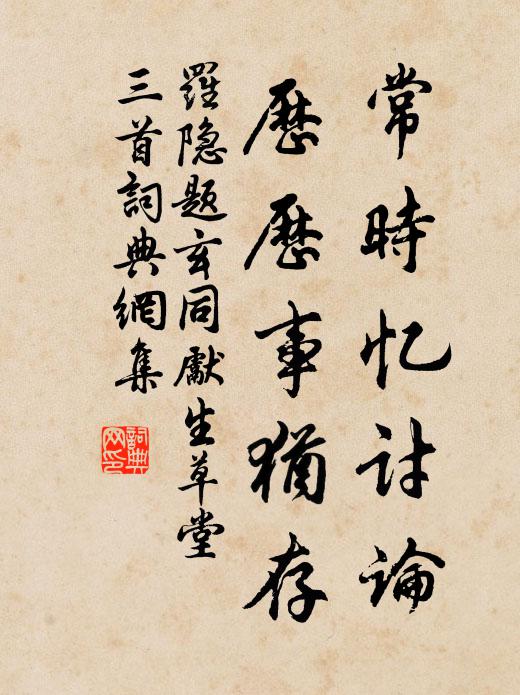 常時忆討論
歷歷事猶存
羅隐题玄同獻生草堂
三首詞典網集
詞典
网印